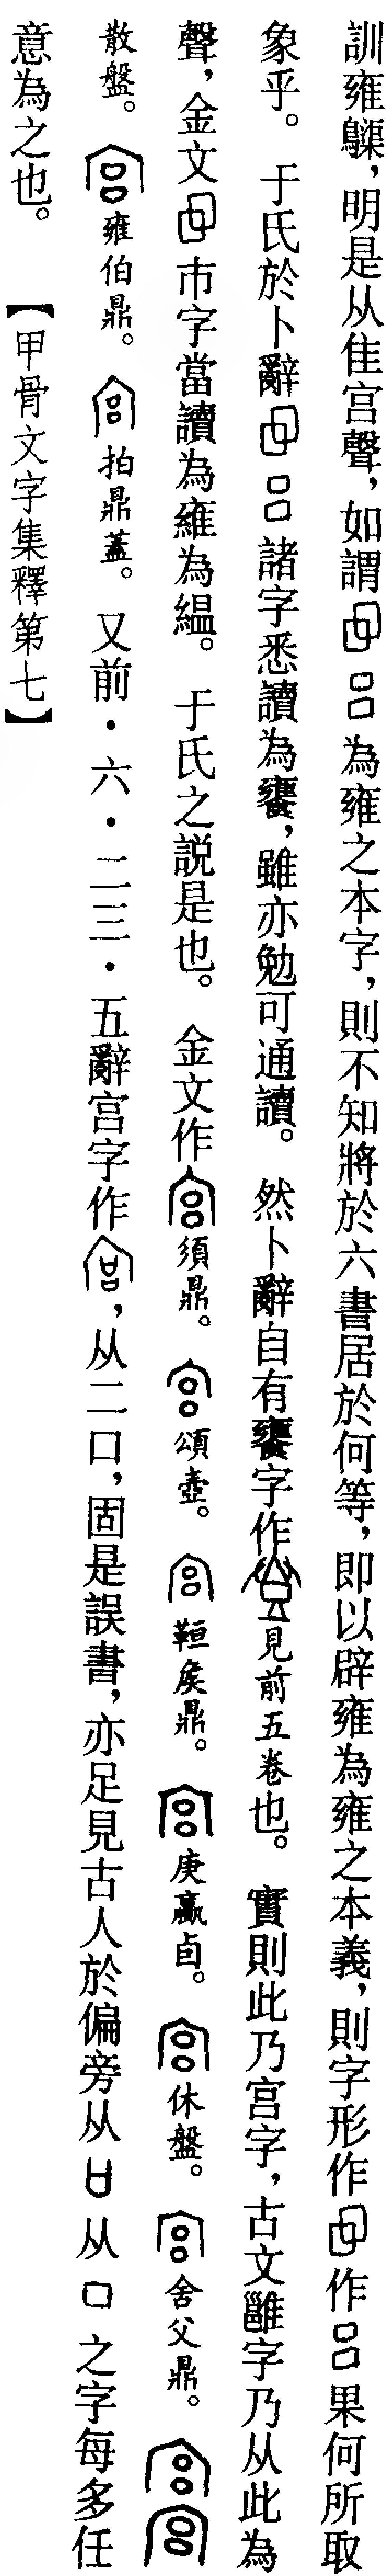 訓雍𩀱，明是从隹宫聲，如謂 為雍之本字，則不知將於六書居於何等，即以辟雍為雍之本義，則字形作 作 果何所取
象乎。于氏於卜辭 諸字悉讀為饔，雖亦勉可通讀。然卜辭自有饔字作 見前五卷也。實則此乃宫字，古文雝字乃从此為
聲，金文 市字當讀為雍為緼。于氏之説是也。金文作 須鼎。 頌壺。 䩠矦鼎。 庚贏卣。 休盤。 舍父鼎。
散盤。 雍伯鼎。 拍鼎蓋。又前·六·二三·五辭宫字作 ，从二口，固是誤書，亦足見古人於偏旁从 从 之字每多任
意為之也。【甲骨文字集釋第七】